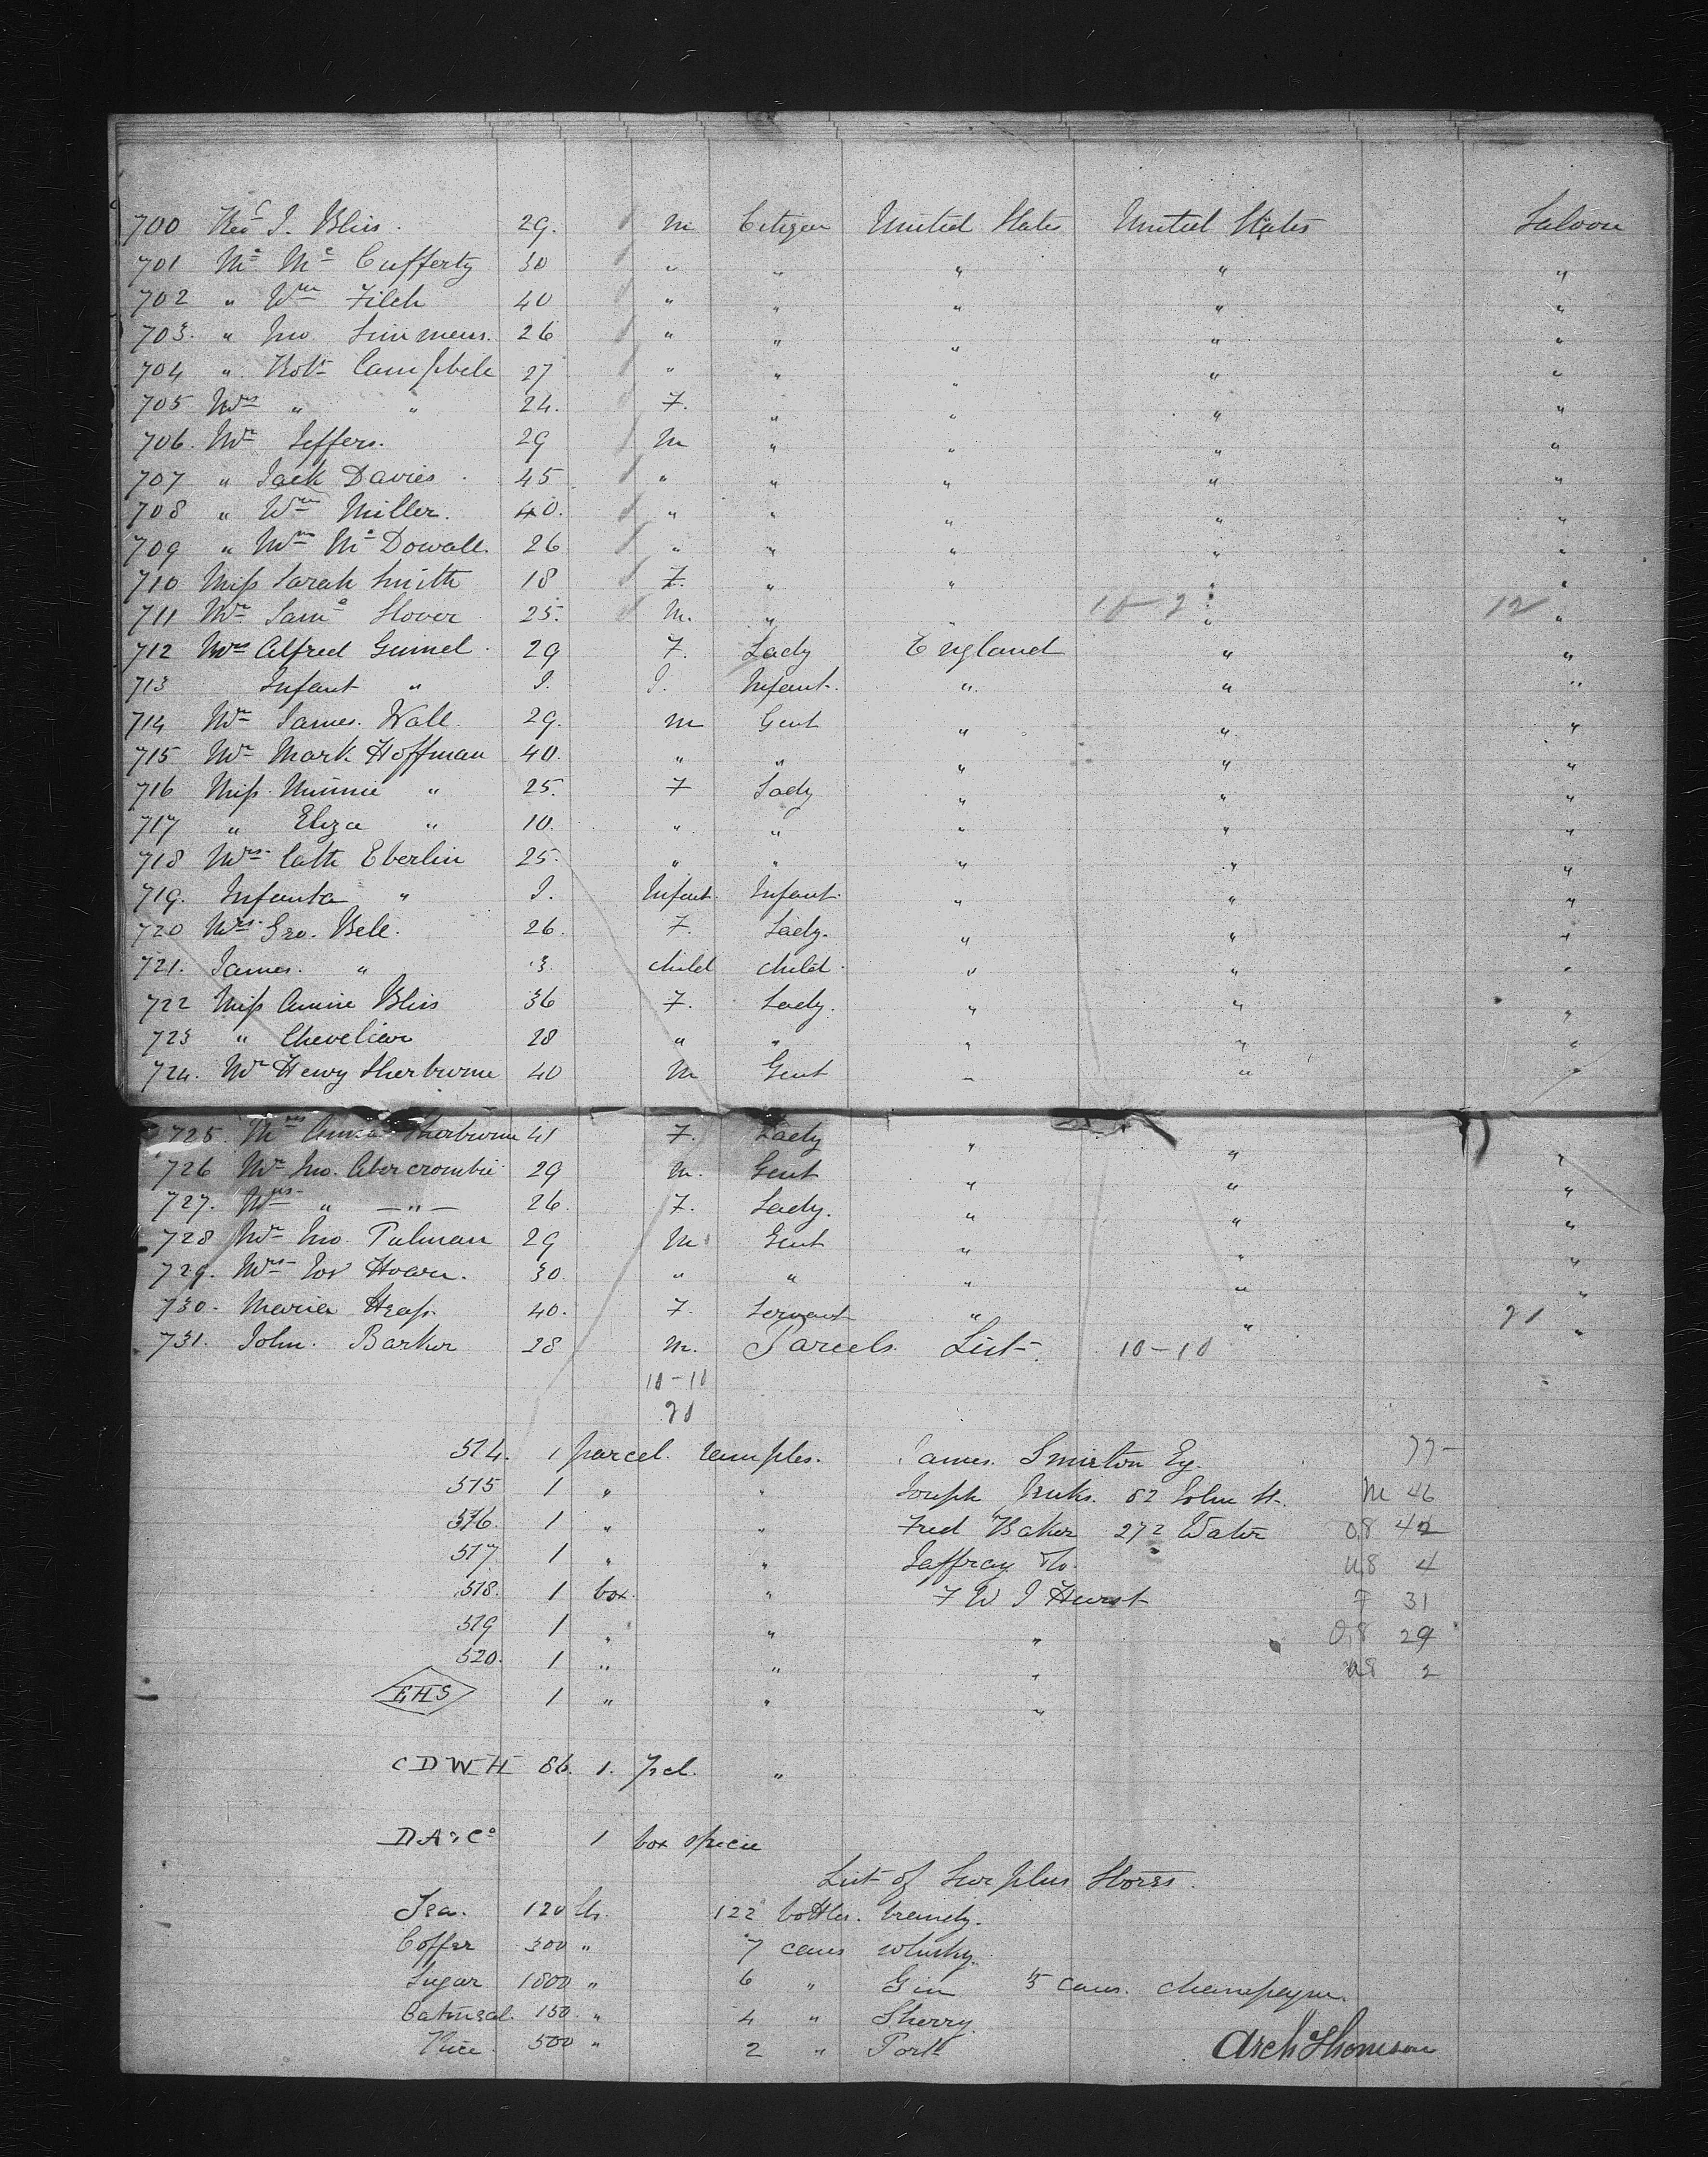 700 Rev J. Bliss. 29. m Citizen United States United States Saloon
701 Mr Mc Cufferty 30 " " " " "
702 " Wm Filch 40 " " " " "
703. " Jno. Simmens. 26 " " " " "
704 " Robt Campbell 27 " " " " "
705 Mrs " " 24. F. " " " "
706. Mr Jeffers. 29 m " " " "
707 " Jack Davies. 45 " " " " "
708 " Wm Miller. 40. " " " " "
709 " Wm McDowall. 26 " " " " "
710 Miss Sarah Smith 18 F. " " " "
711 Mr Saml Slover 25. M. " " 10-2 " 12 "
712 Mrs Alfred Guinel. 29 F. Lady England " "
713 Infant " I. I. Infant. " " "
714 Mr James. Wall. 29. m Gent " " "
715 Mr Mark Hoffman 40. " " " " "
716 Miss Minnie " 25. F Lady " " "
717 " Eliza " 10. " " " " "
718 Mrs Cath Eberlin 25. " " " " "
719. Infanta " I. Infant. Infant. " " "
720 Mrs Geo. Bell. 26. F. Lady. " " "
721. James. " 3. child child. " " "
722 Miss Annie Bliss 36 F. Lady. " " "
723 " Chevelier 28 " " " " "
724. Mr Henry Sherburne 40 M Gent " " "
725. Mrs Anna Sherburne 41 F. Lady " " "
726 Mr Jno. Abercrombie 29 M. Gent " " "
727. Mrs " — " — 26. F. Lady. " " "
728 Mr Jno. Pulman 29 M Gent " " "
729. Mrs Hoare. 30. " " " " "
730. Maria Heap. 40. F. Servant " " 21 "
731. John. Barker 28 M. Parcels List. 10-10
10-10
20
514. 1 parcel samples. James. Smieton Esq. 77-
515 1 " " Joseph Jenks. 82 John St. M 46
516. 1 " " Fred Baker 272 Water 08 42
517 1 " " Jaffray Co. U8 4
518. 1 box. " F W J Hurst F 31
519 1 " " " 0,8 29
520. 1 " " " U8 2
EHS 1 " " "
CDWH 86. 1. pcl. "
DA & Co 1 box specie
List of Surplus Stores.
Tea. 120 lbs. 122 bottles. brandy.
Coffee 300 " 7 cases whisky.
Sugar 1800 " 6 " Gin 15 cases. champayne.
Oatmeal. 150. " 4 " Sherry.
Rice. 500 " 2 " Port
Arch Thomson